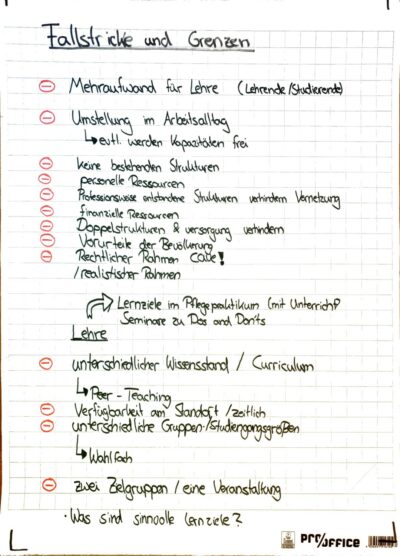 Fallstricke und Grenzen
Mehraufwand für Lehre (Lehrende/Studierende)
Umstellung im Arbeitsalltag
↳ evtl. werden Kapazitäten frei
keine bestehenden Strukturen
personelle Ressourcen
Professionsweise entstandene Strukturen verhindern Vernetzung
finanzielle Ressourcen
Doppelstrukturen & versorgung verhindern
Vorurteile der Bevölkerung
Rechtlicher Rahmen !
/realistischer Rahmen
Lernziele im Pflegepraktikum (mit Unterricht?
Seminare zu Dos and Don'ts
Lehre
unterschiedlicher Wissensstand / Curriculum
↳ Peer-Teaching
Verfügbarkeit am Standort /zeitlich
unterschiedliche Gruppen-/Studiengangsgrößen
↳ Wahlfach
zwei Zielgruppen / eine Veranstaltung
· Was sind sinnvolle Lernziele?
PRO/OFFICE